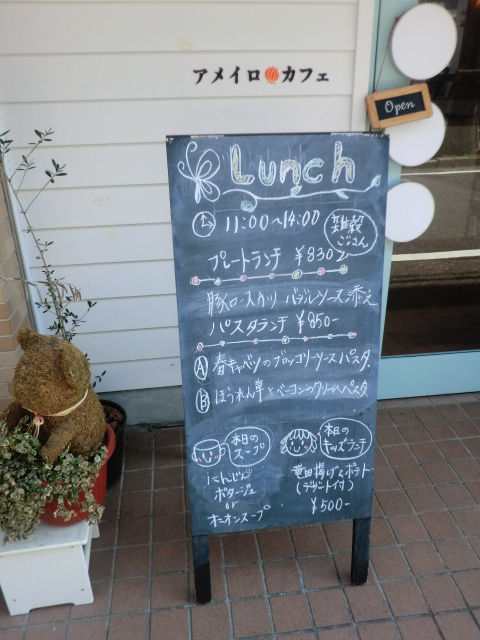 アメイロカフェ
Open
Lunch
11:00〜14:00
雑穀
ごはん
プレートランチ ¥830-
豚ロースカツ バジルソース添え
パスタランチ ¥850-
Ⓐ 春キャベツのブロッコリーソースパスタ
Ⓑ ほうれん草とベーコンのクリームパスタ
本日の
スープ
にんじん
ポタージュ
or
オニオンスープ
本日の
キッズランチ
竜田揚げ&ポテト
(デザート付)
¥500-